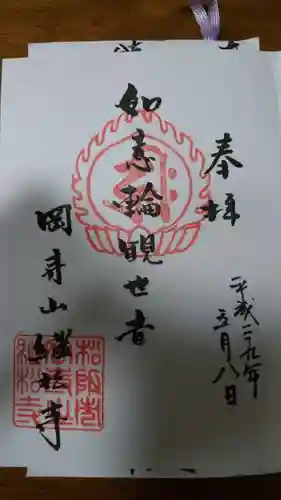 奉拝
平成二九年
五月八日
如意輪観世音
岡寺山継松寺